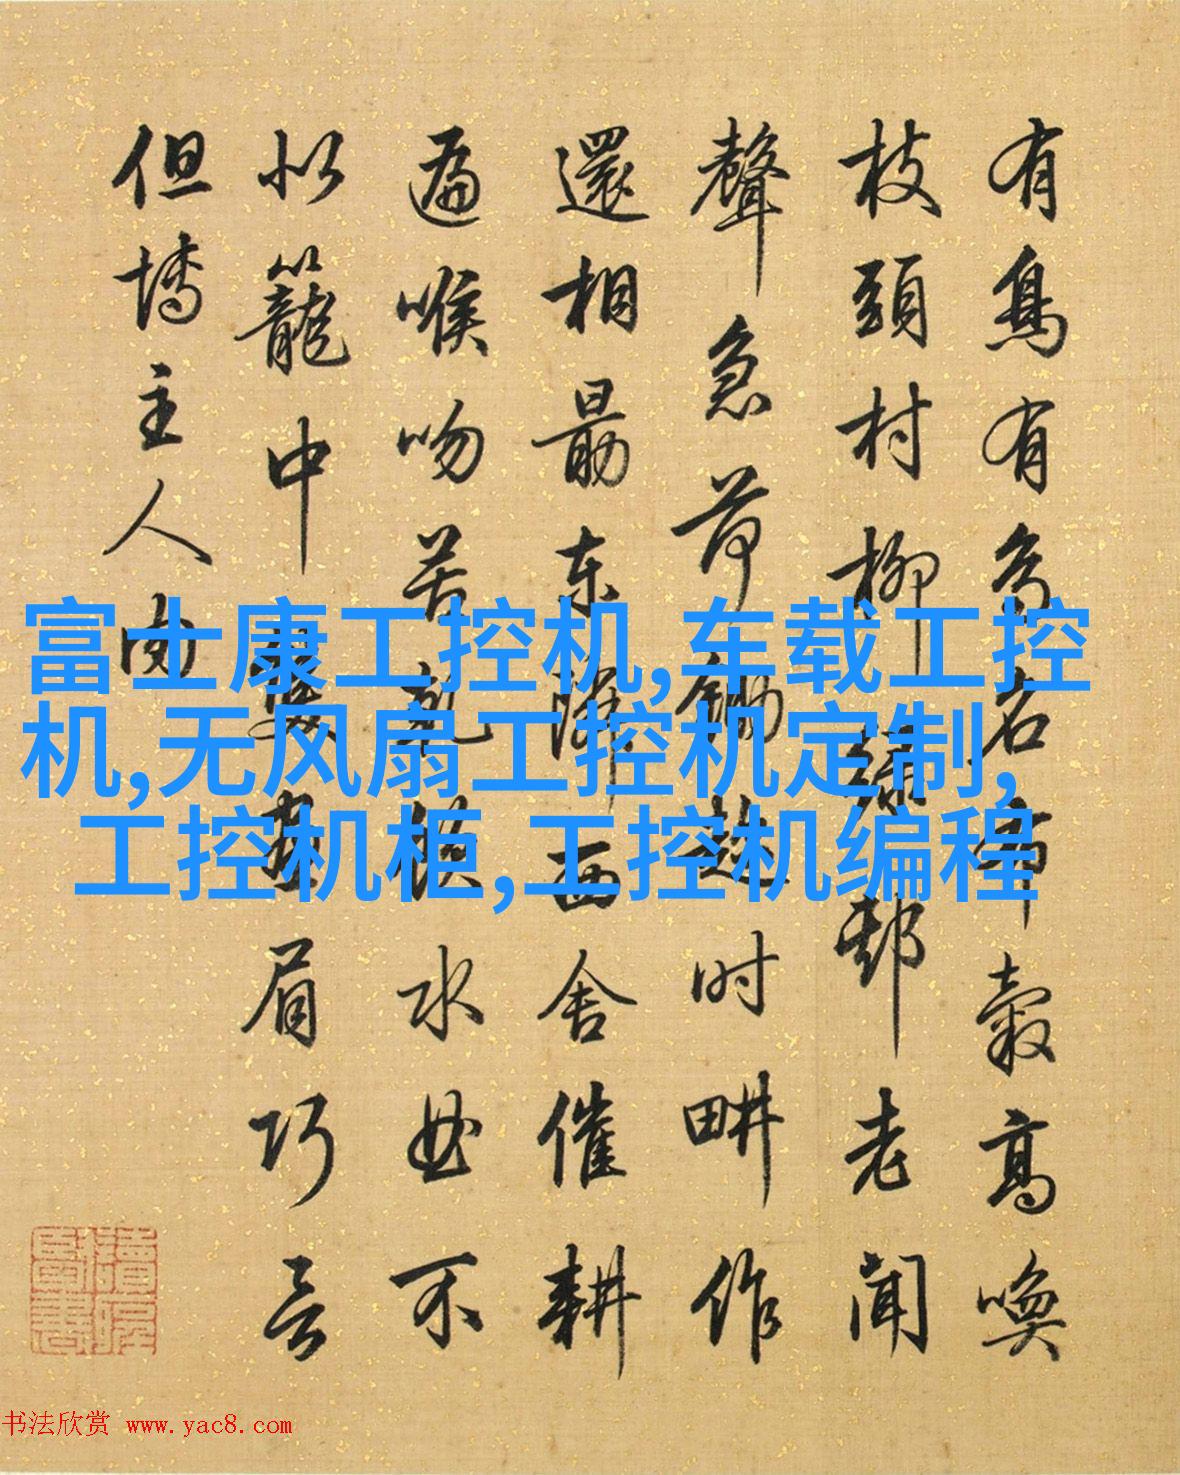 有鳥有鳥名布穀高喚
枝頭村柳綠鄰老聞
聲急荷鋤趁時畊作
還相勗東鄰西舍催耕
遍喉吻苦乾水不
似籠中畫眉巧言
但主人
富士康工控机,车载工控
机,无风扇工控机定制,
工控机柜,工控机编程
书法欣赏 www.yac8.com